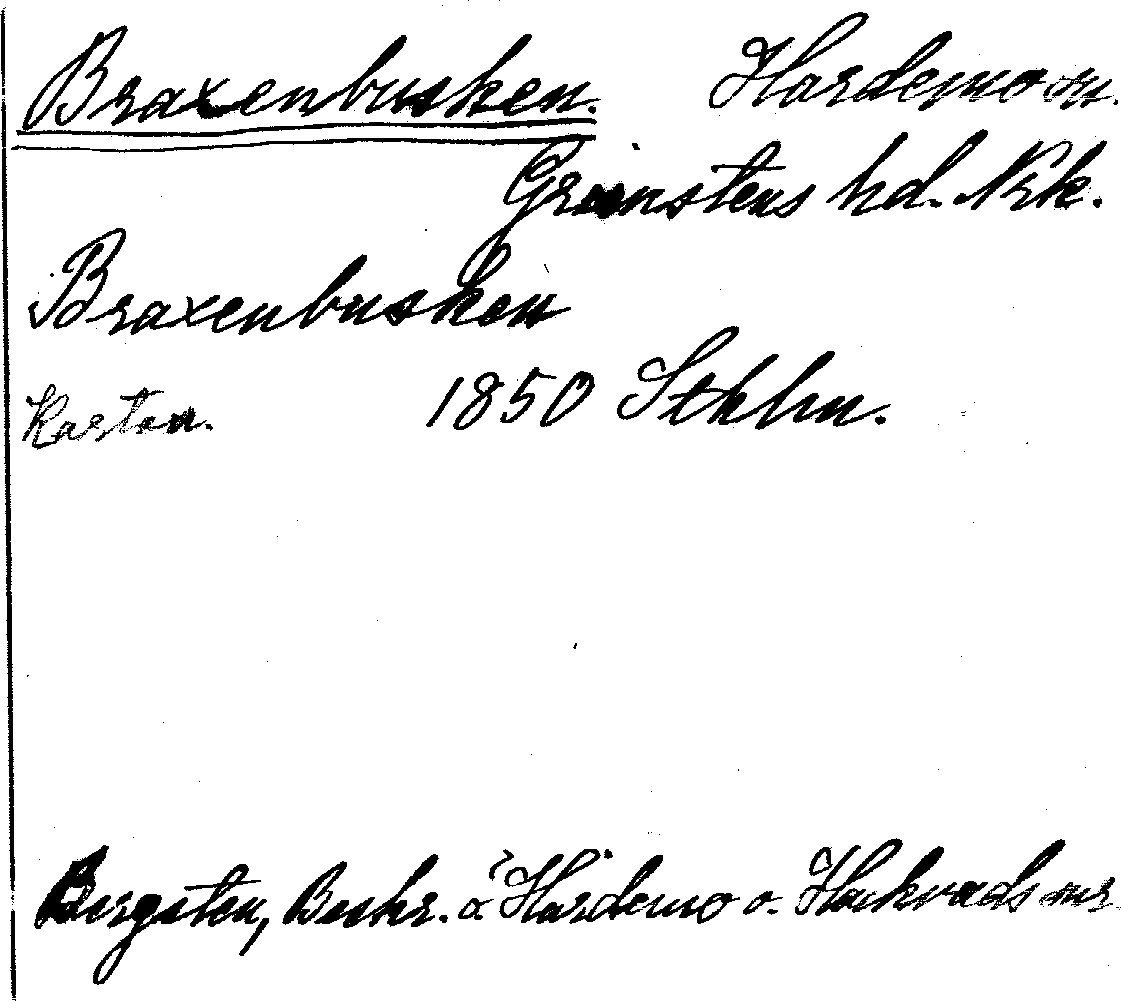 Braxenbusken. Hardemo sn.
Grimstens hd. Nrk.
Braxenbusken
Kartan. 1850 Sthlm.
Bergsten, Beskr. å Hardemo o. Hackvads snr